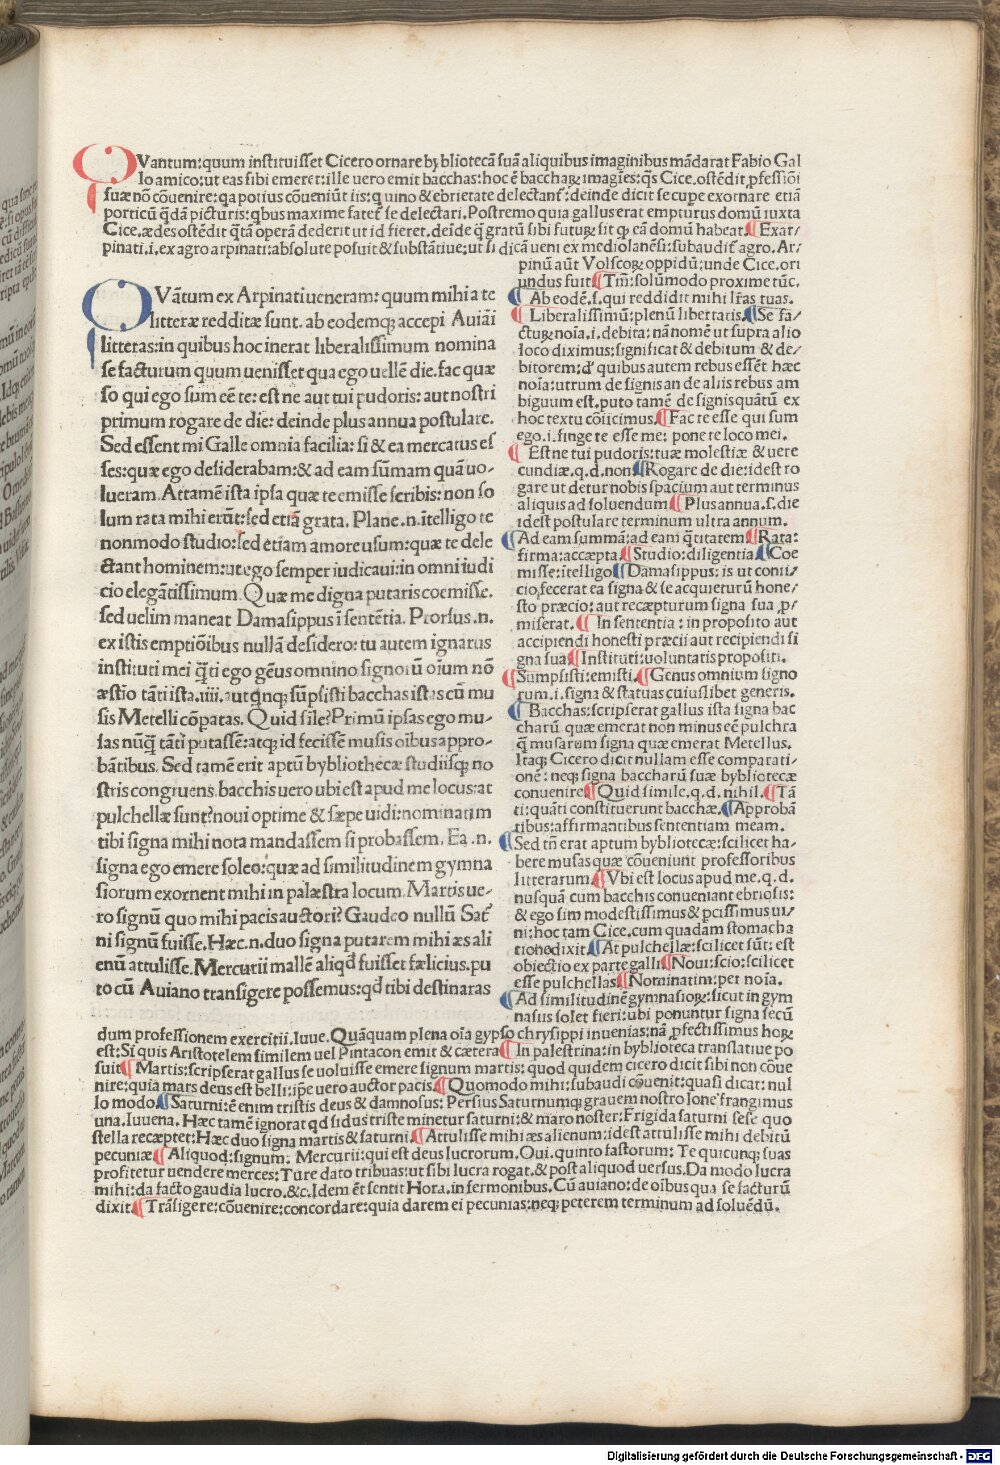 QVantum: quum instituisset Cicero ornare bybliotecã suã aliquibus imaginibus mãdarat Fabio Gal
lo amico: ut eas sibi emeret: ille uero emit bacchas: hoc ẽ bacchaꝝ imagĩes: q̃s Cice. ostẽdit ꝓfessiõi
suæ nõ cõuenire: qa potius cõueniũt iis: q uino & ebrietate delectant᷑: deinde dicit se cupe exornare etiã
porticũ q̃dã picturis: qbus maxime fatet᷑ se delectari. Postremo quia gallus erat empturus domũ iuxta
Cice. ædes ostẽdit q̃tã operã dederit ut id fieret. deĩde q̃ gratũ sibi futuꝝ sit ꝙ eã domũ habeat. ¶ Ex ar-
pinati. i. ex agro arpinati: absolute posuit & substãtiue: ut si dicã ueni ex mediolanẽsi: subaudit᷑ agro. Ar-
pinũ aũt Volscoꝝ oppidũ: unde Cice. ori
undus fuit. ¶ Tm̃: solũmodo proxime tũc.
¶ Ab eodẽ. s. qui reddidit mihi lr̃as tuas.
¶ Liberalissimũ: plenũ libertatis. ¶ Se fa-
ctuꝝ noĩa. i. debita: nã nomẽ ut supra alio
loco diximus: significat & debitum & de-
bitorem: d' quibus autem rebus essẽt hæc
noĩa: utrum de signis an de aliis rebus am
biguum est. puto tamẽ de signis quãtũ ex
hoc textu cõiicimus. ¶ Fac te esse qui sum
ego. i. finge te esse me: pone te loco mei.
¶ Est ne tui pudoris: tuæ molestiæ & uere
cundiæ. q. d. non ¶ Rogare de die: id est ro
gare ut detur nobis spacium aut terminus
aliquis ad soluendum ¶ Plus annua. s. die
id est postulare terminum ultra annum.
¶ Ad eam summã: ad eam q̃titatem ¶ Rata:
firma: accæpta ¶ Studio: diligentia ¶ Coe
misse: ĩtelligo ¶ Damasippus: is ut conii-
cio, fecerat ea signa & se acquieturũ hone-
sto præcio: aut recæpturum signa sua ꝓ-
miserat. ¶ In sententia: in proposito aut
accipiendi honesti præcii aut recipiendi si
gna sua ¶ Instituti: uoluntatis propositi.
¶ Sumpsisti: emisti. ¶ Genus omnium signo
rum. i. signa & statuas cuiuslibet generis.
¶ Bacchas: scripserat gallus ista signa bac
charũ quæ emerat non minus eẽ pulchra
q̃ musarum signa quæ emerat Metellus.
Itaq; Cicero dicit nullam esse comparati-
onẽ: neq; signa baccharũ suæ bybliotecæ
conuenire ¶ Quid simile. q. d. nihil. ¶ Tã
ti: quãti constituerunt bacchæ. ¶ Approbã
tibus: affirmantibus sententiam meam.
¶ Sed tñ erat aptum bybliotecæ: scilicet ha-
bere musas quæ cõueniunt professoribus
litterarum ¶ Vbi est locus apud me. q. d.
nusquã cum bacchis conueniant ebriosis:
& ego sim modestissimus & pcissimus ui-
ni: hoc tam Cice. cum quadam stomacha
tione dixit ¶ At pulchellæ: scilicet sũt: est
obiectio ex parte galli ¶ Noui: scio: scilicet
esse pulchellas ¶ Nominatim: per noĩa.
¶ Ad similitudinẽ gymnasioꝝ: sicut in gym
nasiis solet fieri: ubi ponuntur signa secũ
QVãtum ex Arpinati ueneram: quum mihi a te
litteræ redditæ sunt. ab eodemq; accepi Auiãi
litteras: in quibus hoc inerat liberalissimum nomina
se facturum quum uenisset qua ego uellẽ die. fac quæ
so qui ego sum eẽ te: est ne aut tui pudoris: aut nostri
primum rogare de die: deinde plus annua postulare.
Sed essent mi Galle omnia facilia: si & ea mercatus es
ses: quæ ego desiderabam: & ad eam sũmam quã uo-
lueram. Attamẽ ista ipsa quæ te emisse scribis: non so
lum rata mihi erũt: sed etiã grata. Plane. n. ĩtelligo te
non modo studio: sed etiam amore usum: quæ te dele
ctant hominem: ut ego semper iudicaui: in omni iudi
cio elegãtissimum. Quæ me digna putaris coemisse.
sed uelim maneat Damasippus ĩ sentẽtia. Prorsus. n.
ex istis emptiõibus nullã desidero: tu autem ignarus
instituti mei q̃ti ego gẽus omnino signoꝝ oĩum nõ
æstĩo tãti ista. iiii. aut qnq; sũpsisti bacchas istas cũ mu
sis Metelli cõpatas. Quid sile? Primũ ipsas ego mu-
sas nũq̃ tãti putassẽ: atq; id fecissẽ musis oĩbus appro-
bãtibus. Sed tamẽ erit aptũ bybliothecæ studiisq; no
stris congruens. bacchis uero ubi est apud me locus: at
pulchellæ sunt? noui optime & sæpe uidi: nominatim
tibi signa mihi nota mandassem si probassem. Ea .n.
signa ego emere soleo: quæ ad similitudinem gymna
siorum exornent mihi in palæstra locum. Martis ue-
ro signũ quo mihi pacis auctori? Gaudeo nullũ Sat᷑
ni signũ fuisse. Hæc. n. duo signa putarem mihi æs ali
enũ attulisse. Mercurii mallẽ aliqd fuisset fælicius. pu
to cũ Auiano transigere possemus: qd tibi destinaras
dum professionem exercitii. Iuue. Quãquam plena oĩa gypso chrysippi inuenias: nã ꝓfectissimus hoꝝ
est: Si quis Aristotelem similem uel Pintacon emit & cætera ¶ In palestrina: in byblioteca translatiue po
suit ¶ Martis: scripserat gallus se uoluisse emere signum martis: quod quidem cicero dicit sibi non cõue
nire: quia mars deus est belli: ip̃e uero auctor pacis. ¶ Quomodo mihi: subaudi cõuenit: quasi dicat: nul
lo modo ¶ Saturni: ẽ enim tristis deus & damnosus: Persius Saturnumq; grauem nostro Ioue frangimus
una. Iuuena. Hæc tamẽ ignorat qd sidus triste minetur saturni: & maro noster: Frigida saturni sese quo
stella recæptet: Hæc duo signa martis & saturni. ¶ Attulisse mihi æs alienum: id est attulisse mihi debitũ
pecuniæ ¶ Aliquod: signum. Mercurii: qui est deus lucrorum. Oui. quinto fastorum: Te quicunq; suas
profitetur uendere merces: Ture dato tribuas: ut sibi lucra rogat. & post aliquod uersus. Da modo lucra
mihi: da facto gaudia lucro. &c. Idem ẽt sentit Hora. in sermonibus. Cũ auiano: de oĩbus qua se facturũ
dixit ¶ Trãsigere: cõuenire: concordare: quia darem ei pecunias: neq; peterem terminum ad soluẽdũ.
Digitalisierung gefördert durch die Deutsche Forschungsgemeinschaft - DFG